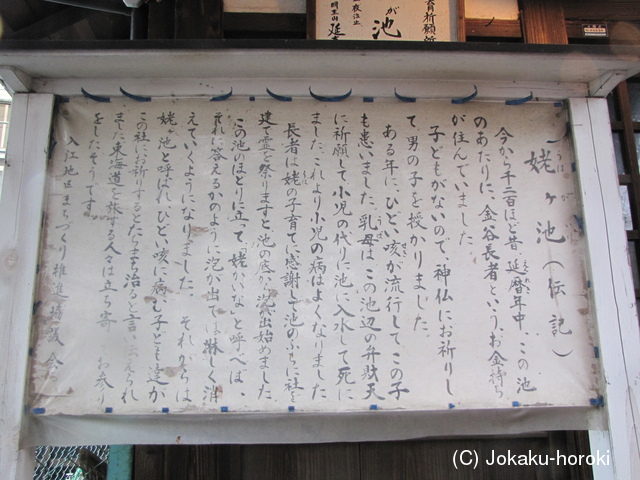 姥ヶ池(伝記)
今から千二百ほど昔、延暦年中、この池
のあたりに、金谷長者という、お金持ち
が住んでいました。
子どもがないので、神仏にお祈りし
て、男の子を授かりました。
ある年に、ひどい咳が流行して、この子
も患いました。乳母は、この池辺の弁財天
に祈願して、小児の代りに池に入水して死に
ました。これより小児の病はよくなりました
長者は姥の子育てに感謝して池の
社を
建て霊を祭りますと、池の底から泡が出始めました
この池のほとりに立て、"姥かいな"と呼べば、
それに答えるかのように泡が出ては淋しく消
えていくようになりました。それからは
姥ヶ池と呼ばれ、ひどい咳に病む子ども達が
この社にお祈りするとたちまち治ると言い伝えられ
ました。東海道を旅する人々は立ち寄り お参り
をしたそうです。
入江地区まちづくり推進協議会
が池
延
(C) Jokaku-horoki